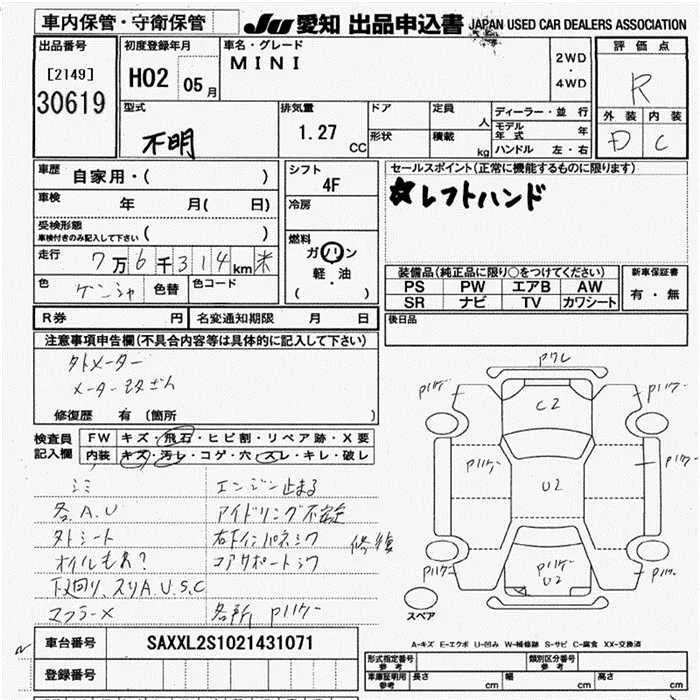 車内保管・守衛保管
JU 愛知 出品申込書 JAPAN USED CAR DEALERS ASSOCIATION
出品番号
[2149]
30619
初度登録年月
H02 05月
車名・グレード
MINI
2WD
・
4WD
評価点
R
外装 内装
D C
型式
不明
排気量
1.27 CC
ドア
形状
定員 人
積載 kg
ディーラー・並行
モデル年式 年
ハンドル 左・右
車歴
自家用・( )
車検 年 月( 日)
受検形態
車検付きのみ記入して下さい ( )
走行 7万6千314km 米
色 ゲンシャ 色替 色コード
シフト
4F
冷房
燃料
ガソリン
軽・油
( )
セールスポイント(正常に機能するものに限ります)
☆レフトハンド
装備品(純正品に限り○をつけてください)
PS PW エアB AW
SR ナビ TV カワシート
新車保証書
有・無
R券 円 名変通知期限 月 日
後日品
注意事項申告欄(不具合内容等は具体的に記入して下さい)
タトメーター
メーター改ざん
修復歴 有 (箇所 )
検査員
記入欄
FW キズ・飛石・ヒビ割・リペア跡・X要
内装 キズ・汚レ・コゲ・穴・スレ・キレ・破レ
シミ エンジン止まる
各A.U アイドリング不安定
タトシート 右下インパネシワ 修復
オイルもれ? コアサポートシワ
下廻り、スリA.U.S.C
マフラーX 各所 P11ケー
P クレ
P11ケー P11ケー
C2
P11ケー U2 P11ケー
P11ケー P11ケー U2 P11ケー
スペア
A-キズ E-エクボ U-凹み W-補修跡 S-サビ C-腐食 XX-交換済
車台番号 SAXXL2S1021431071
登録番号
形式指定番号 参考 類別区分番号 参考
車庫証明用 参考 長さ 幅 高さ